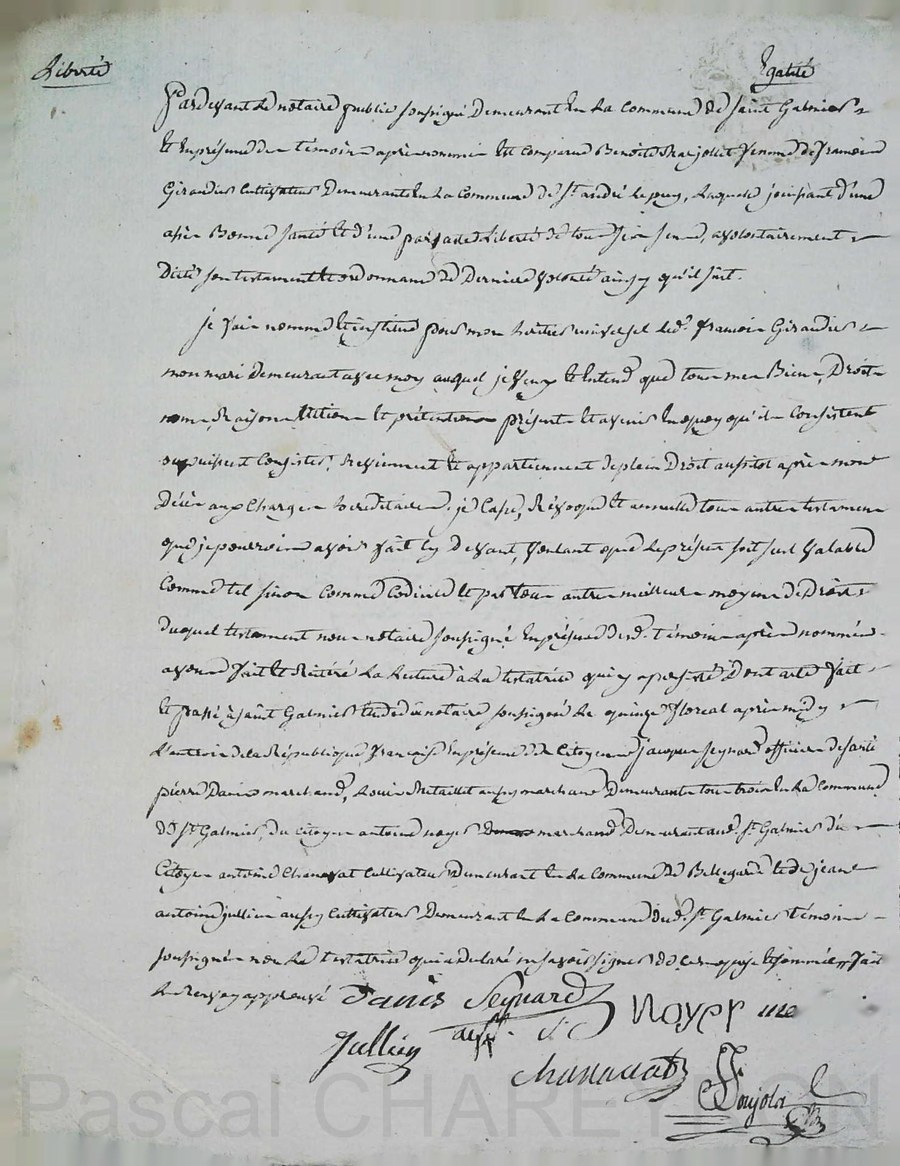 Liberté
Egalité
Pardevant Le notaire public soussigné Demeurant En La Commune de saint Galmier
Et En présence des témoins après nommés Est comparue Benoite femme de françois
Giraudier Cultivateur Demeurant En La Commune de St andré Le puy, Laquelle jouissant d'une
asses Bonne santé Et d'une parfaite Liberté de tous ses sens, a volontairement
Dicté son testament et ordonnance De Derniere volonté ainsy qu'il suit.
je fais nomme Et institue pour mon heritier universel Led. françois Giraudier
mon mari Demeurant avec moy auquel je veux Et Entend que tous mes Biens, Droits
noms, Raisons actions Et prétentions présents Et avenir En quoy qu'ils Consistent
ou puissent Consister, Reviennent Et appartiennent de plein Droit aussitot après mon
Décès aux Charges hereditaires. je Casse, Révoque Et annulle tous autres testament
que je pourrois avoir fait Cy Devant, voulant que Le présent soit seul valable
Comme tel sinon Comme Codicile Et par tous autres meilleurs moyens de Droits
Duquel testament nous notaire soussigné En présence desd. témoins après nommés
avons fait Et Réitéré La Lecture à La testatrice qui y a persisté Dont acte fait
Et passé à saint Galmier Etude du notaire soussigné Le quinze floreal après midy
L'an trois de La République françoise En présence des Citoyens jacques seynard officier de santé
pierre Danis marchand, Louis Retaillet aussy marchand Demeurants tous trois En La Commune
De St Galmier, du Citoyen antoine noyer marchand Demeurant aud. St Galmier du
Citoyen antoine Chanavat Cultivateur Demeurant En La Commune De Bellegarde Et de jean
antoine jullien aussy Cultivateur Demeurant En La Commune dud. St Galmier témoins
soussignés non La testatrice qui a déclaré ne savoir signer De Ce enquise Et sommée fait
Le Renvoy approuvé Danis Seynard Noyer
Jullien off. de s.
chanavat Ponjola
Pascal CHAREYRON